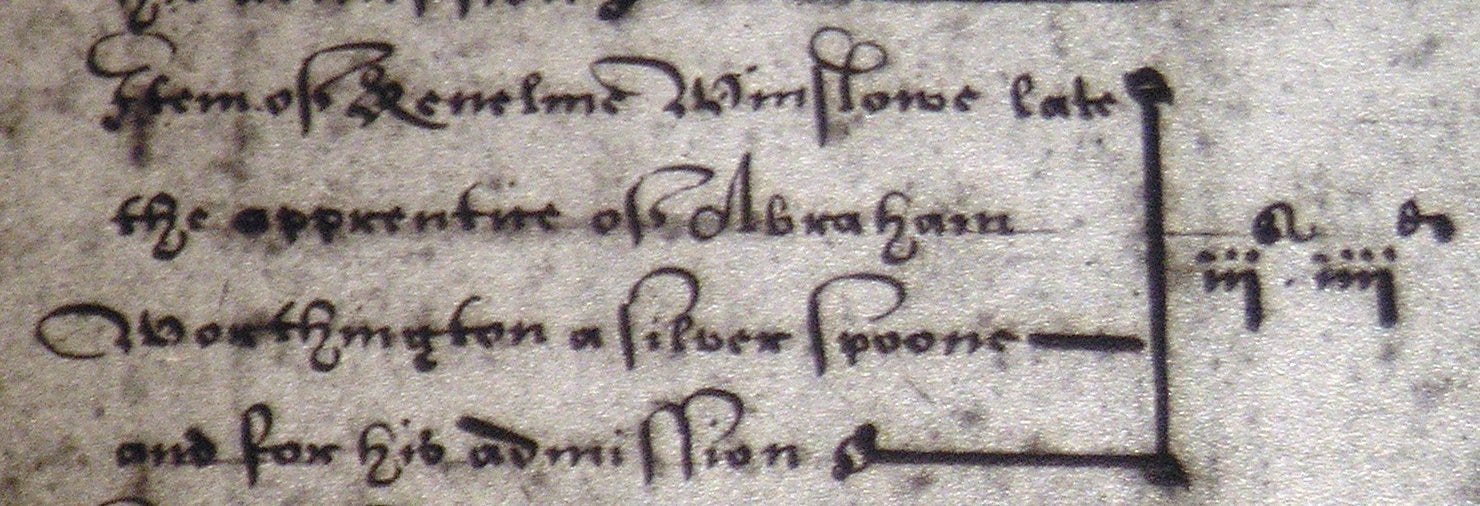 Item of Kenelme Winslowe late
the apprentice of Abraham
Worthington a silver spoone
and for his admission
iijs. iiijd